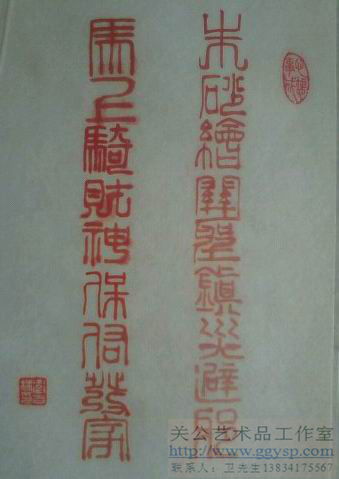 朱砂繪關聖鎮災避邪
馬上騎財神保佑發家
关公艺术品工作室
http://www.ggysp.com
联系人：卫先生13834175567